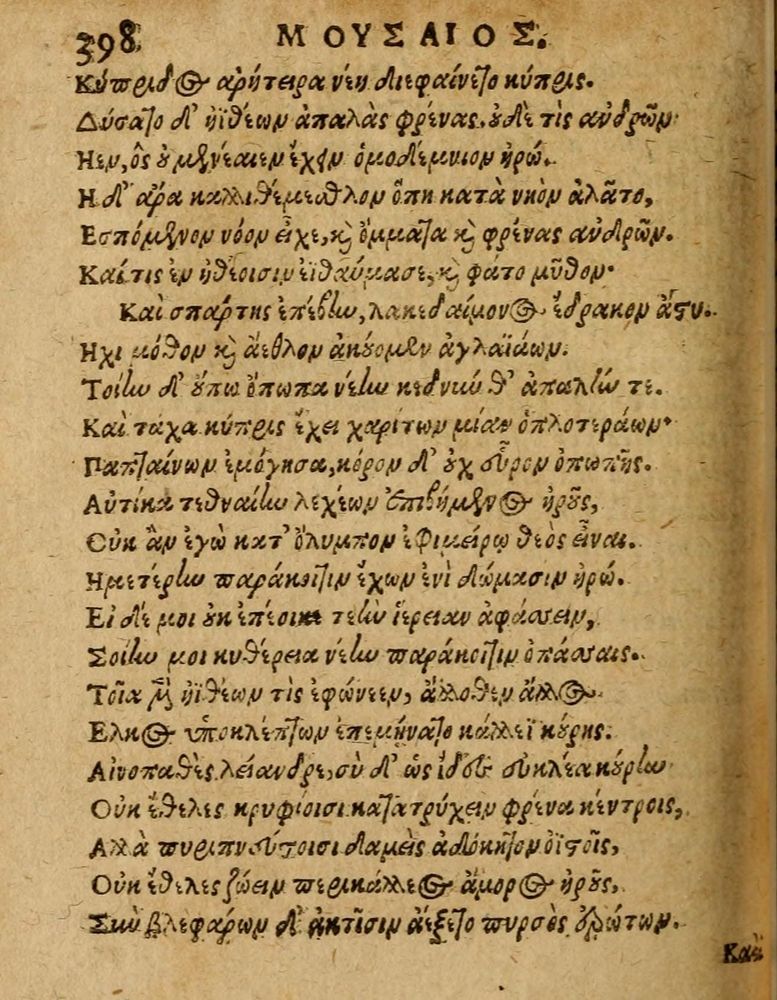 398 ΜΟΥΣΑΙΟΣ.
Κύπριδος ἀρήτειρα νέη διεφαίνετο κύπρις.
Δύσατο δ' ἠϊθέων ἁπαλὰς φρένας. ὐδέ τις ἀνδρῶν·
Ηεν, ὃς ὐ μενέαινεν ἔχειν ὁμοδέμνιον ἡρώ.
Η δ' ἄρα καλλιθέμεθλον ὅπη κατὰ νηὸν ἀλᾶτο,
Εσπόμενον νόον εἶχε, καὶ ὄμματα καὶ φρένας ἀνδρῶν.
Καί τις ἐν ἠϊθέοισιν ἐθαύμασε, καὶ φάτο μῦθον·
Καὶ σπάρτης ἐπέβην, λακεδαίμονος ἔδρακον ἄστυ.
Ηχι μόθον καὶ ἄεθλον ἀκούομεν ἀγλαϊάων.
Τοίην δ' οὔπω ὄπωπα νέην κεδνήν θ' ἁπαλήν τε.
Καὶ τάχα κύπρις ἔχει χαρίτων μίαν ὁπλοτεράων·
Παπταίνων ἐμόγησα, κόρον δ' οὐχ εὗρον ὀπωπῆς.
Αὐτίκα τεθναίην λεχέων ἐπιβήμενος ἡροῦς,
Οὐκ ἂν ἐγὼ κατ' ὄλυμπον ἐφιμείρω θεὸς εἶναι.
Ημετέρην παράκοιτιν ἔχων ἐνὶ δώμασιν ἡρώ.
Εἰ δέ μοι οὐκ ἐπέοικε τεὴν ἱέρειαν ἀφάσσειν,
Τοίην μοι κυθέρεια νέην παράκοιτιν ὀπάσσαις.
Τοῖα μὲν ἠϊθέων τὶς ἐφώνεεν, ἄλλοθεν ἄλλος
Ελκος ὑποκλέπτων ἐπεμήνατο κάλλεϊ κούρης.
Αἰνοπαθὲς λείανδρε, σὺ δ' ὡς ἴδες εὐκλέα κούρην
Οὐκ ἔθελες κρυφίοισι κατατρύχειν φρένα κέντροις,
Αλλὰ πυριπνεύστοισι δαμεὶς ἀδόκητον ὀϊστοῖς,
Οὐκ ἔθελες ζώειν περικαλλέος ἄμορος ἡροῦς,
Σὺν βλεφάρων δ' ἀκτῖσιν ἀέξετο πυρσὸς ἐρώτων.
Καὶ